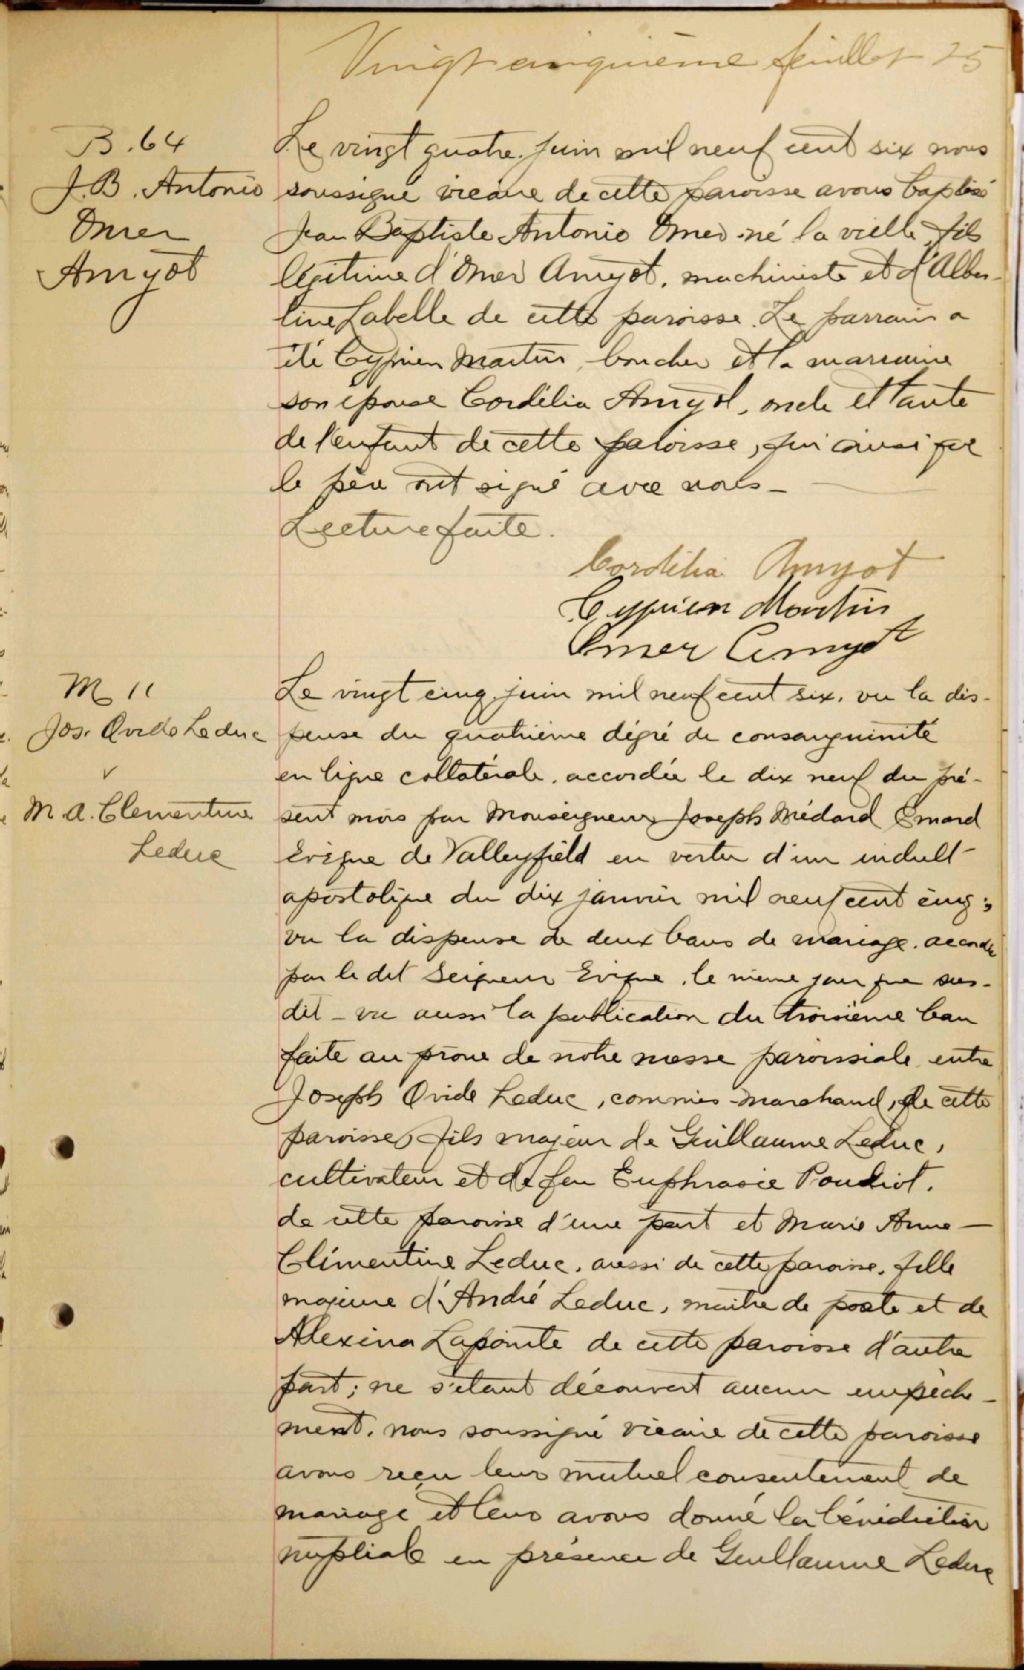 Vingt cinquième feuillet 25
B. 64
J. B. Antonio
Omer
Amyot
Le vingt quatre juin mil neuf cent six nous
soussigné vicaire de cette paroisse avons baptisé
Jean Baptiste Antonio Omer né la vielle, fils
légitime d'Omer Amyot, machiniste et d'Alber-
tine Labelle de cette paroisse. Le parrain a
été Cyprien Martin, boucher et la marraine
son épouse Cordélia Amyot, oncle et tante
de l'enfant de cette paroisse, qui ainsi que
le père ont signé avec nous _
Lecture faite.
Cordélia Amyot
Cyprien Martin
Omer Amyot
M 11
Jos. Ovide Leduc
v
M. A. Clementine
Leduc
Le vingt cinq juin mil neuf cent six, vu la dis-
pense du quatrième dégré de consanguinité
en ligne collatérale, accordée le dix neuf du pré-
sent mois par Monseigneur Joseph Médard Emard
Evêque de Valleyfield en vertu d'un indult
apostolique du dix janvier mil neuf cent cinq ;
vu la dispense de deux bans de mariage, accordée
par le dit Seigneur Evêque, le même jour que sus-
dit _ vu aussi la publication du troisième ban
faite au prône de notre messe paroissiale entre
Joseph Ovide Leduc, commis-marchand, de cette
paroisse, fils majeur de Guillaume Leduc,
cultivateur et de feu Euphrasie Pouliot,
de cette paroisse d'une part et Marie Anne _
Clémentine Leduc, aussi de cette paroisse, fille
majeure d'André Leduc, maître de poste et de
Alexina Lapointe de cette paroisse d'autre
part ; ne s'étant découvert aucun empêche-
ment, nous soussigné vicaire de cette paroisse
avons reçu leur mutuel consentement de
mariage et leur avons donné la bénédiction
nuptiale en présence de Guillaume Leduc